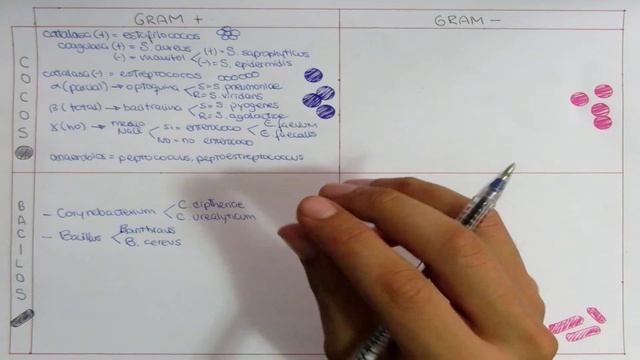 GRAM +
GRAM -
COCOS
catalasa (+) = estafilococos
coagulasa (+) = S. aureus
(-) = manitol (+) = S. saprophyticus
(-) = S. epidermidis
catalasa (-) = estreptococos
α (parcial) → optoquina S = S. pneumoniae
R = S. viridans
β (total) → bacitracina S = S. pyogenes
R = S. agalactiae
γ (no) → medio NaCl si = enterococo E. faecium
E. faecalis
no = no enterococo
anaerobios = peptococcus, peptoestreptococcus
BACILOS
- Corynebacterium C. diptheriae
C. urealyticum
- Bacillus B. anthracis
B. cereus